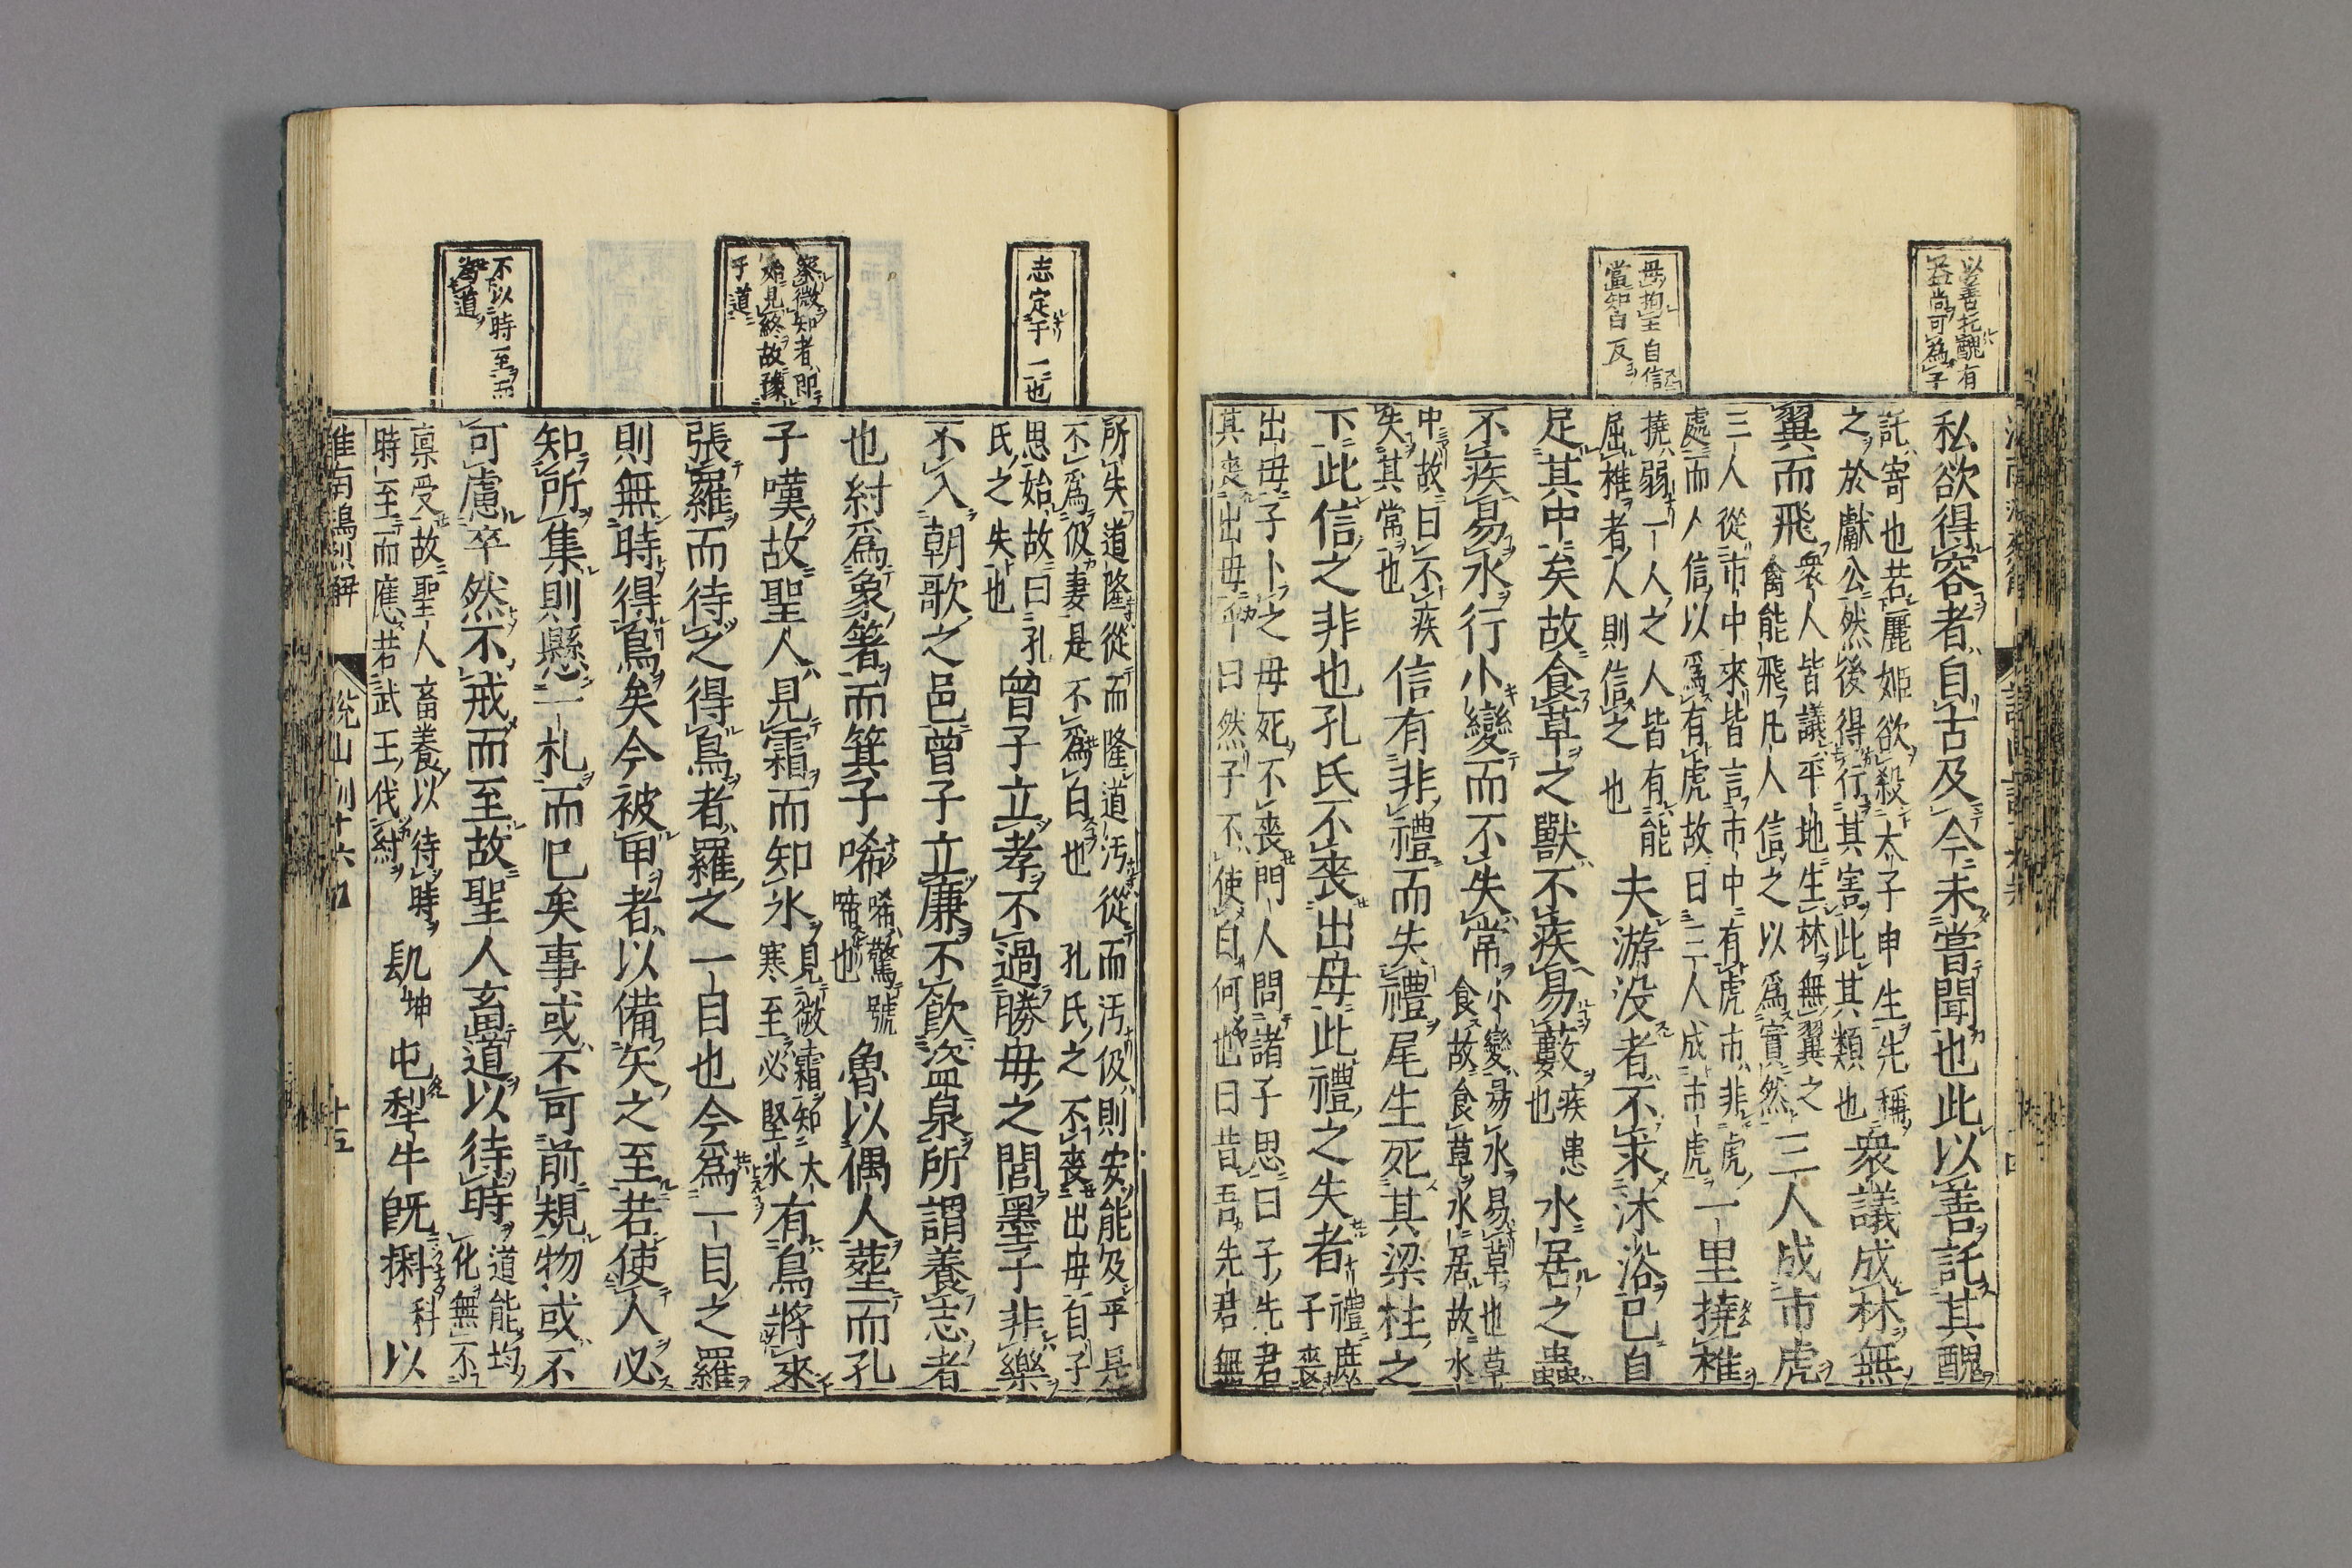 以善托醜有
益尚可為子
毋拘主自信
當知白反
私欲得容者自古及今未嘗聞也此以善託其醜
託寄也若麗姬欲殺太子申生先稱
之於獻公然後得行其害此其類也
衆議成林無
翼而飛
衆人皆議平地生林無翼之
禽能飛凡人信之以爲實然
三人成市虎
三人從市中來皆言市中有虎市非虎
處而人信以爲有虎故曰三人成市虎
一里撓椎
撓弱一人之人皆有能
屈椎者人則信之也
夫游没者不求沐浴已自
足其中矣故食草之獸不疾易藪
疾患
也
水居之蟲
不疾易水行小變而不失常
小變易水易草也草
食故食草水居故水
中故曰不疾
失其常也
信有非禮而失禮尾生死其梁柱之
下此信之非也孔氏不喪出母此禮之失者
禮庶
子喪
出毋子卜之毋死不喪門人問諸子思曰子先君
其喪出毋乎曰然子不使白何也曰昔吾先君無
志定于一也
察微知者即
始見終故豫
乎道
不以時至而
為道
所失道隆從而隆道汚從而汚伋則安能及乎是
不爲伋妻是不爲白也孔氏之不喪出毋自子
思始故曰孔
氏之失也
曾子立孝不過勝毋之閭墨子非樂
不入朝歌之邑曾子立廉不飲盜泉所謂養志者
也紂爲象箸而箕子唏
唏驚號
啼也
魯以偶人葬而孔
子嘆故聖人見霜而知冰
見微霜知大
寒至必堅冰
有鳥將來
張羅而待之得鳥者羅之一目也今爲一目之羅
則無時得鳥矣今被甲者以備矢之至若使人必
知所集則懸一札而已矣事或不可前規物或不
可慮卒然不戒而至故聖人畜道以待時
道能均
化無不
禀受故聖人畜養以待時
時至而應若武王伐紂
髡屯犁牛旣㹀
坤
科
以
淮南鴻烈解
說山訓十六
十五